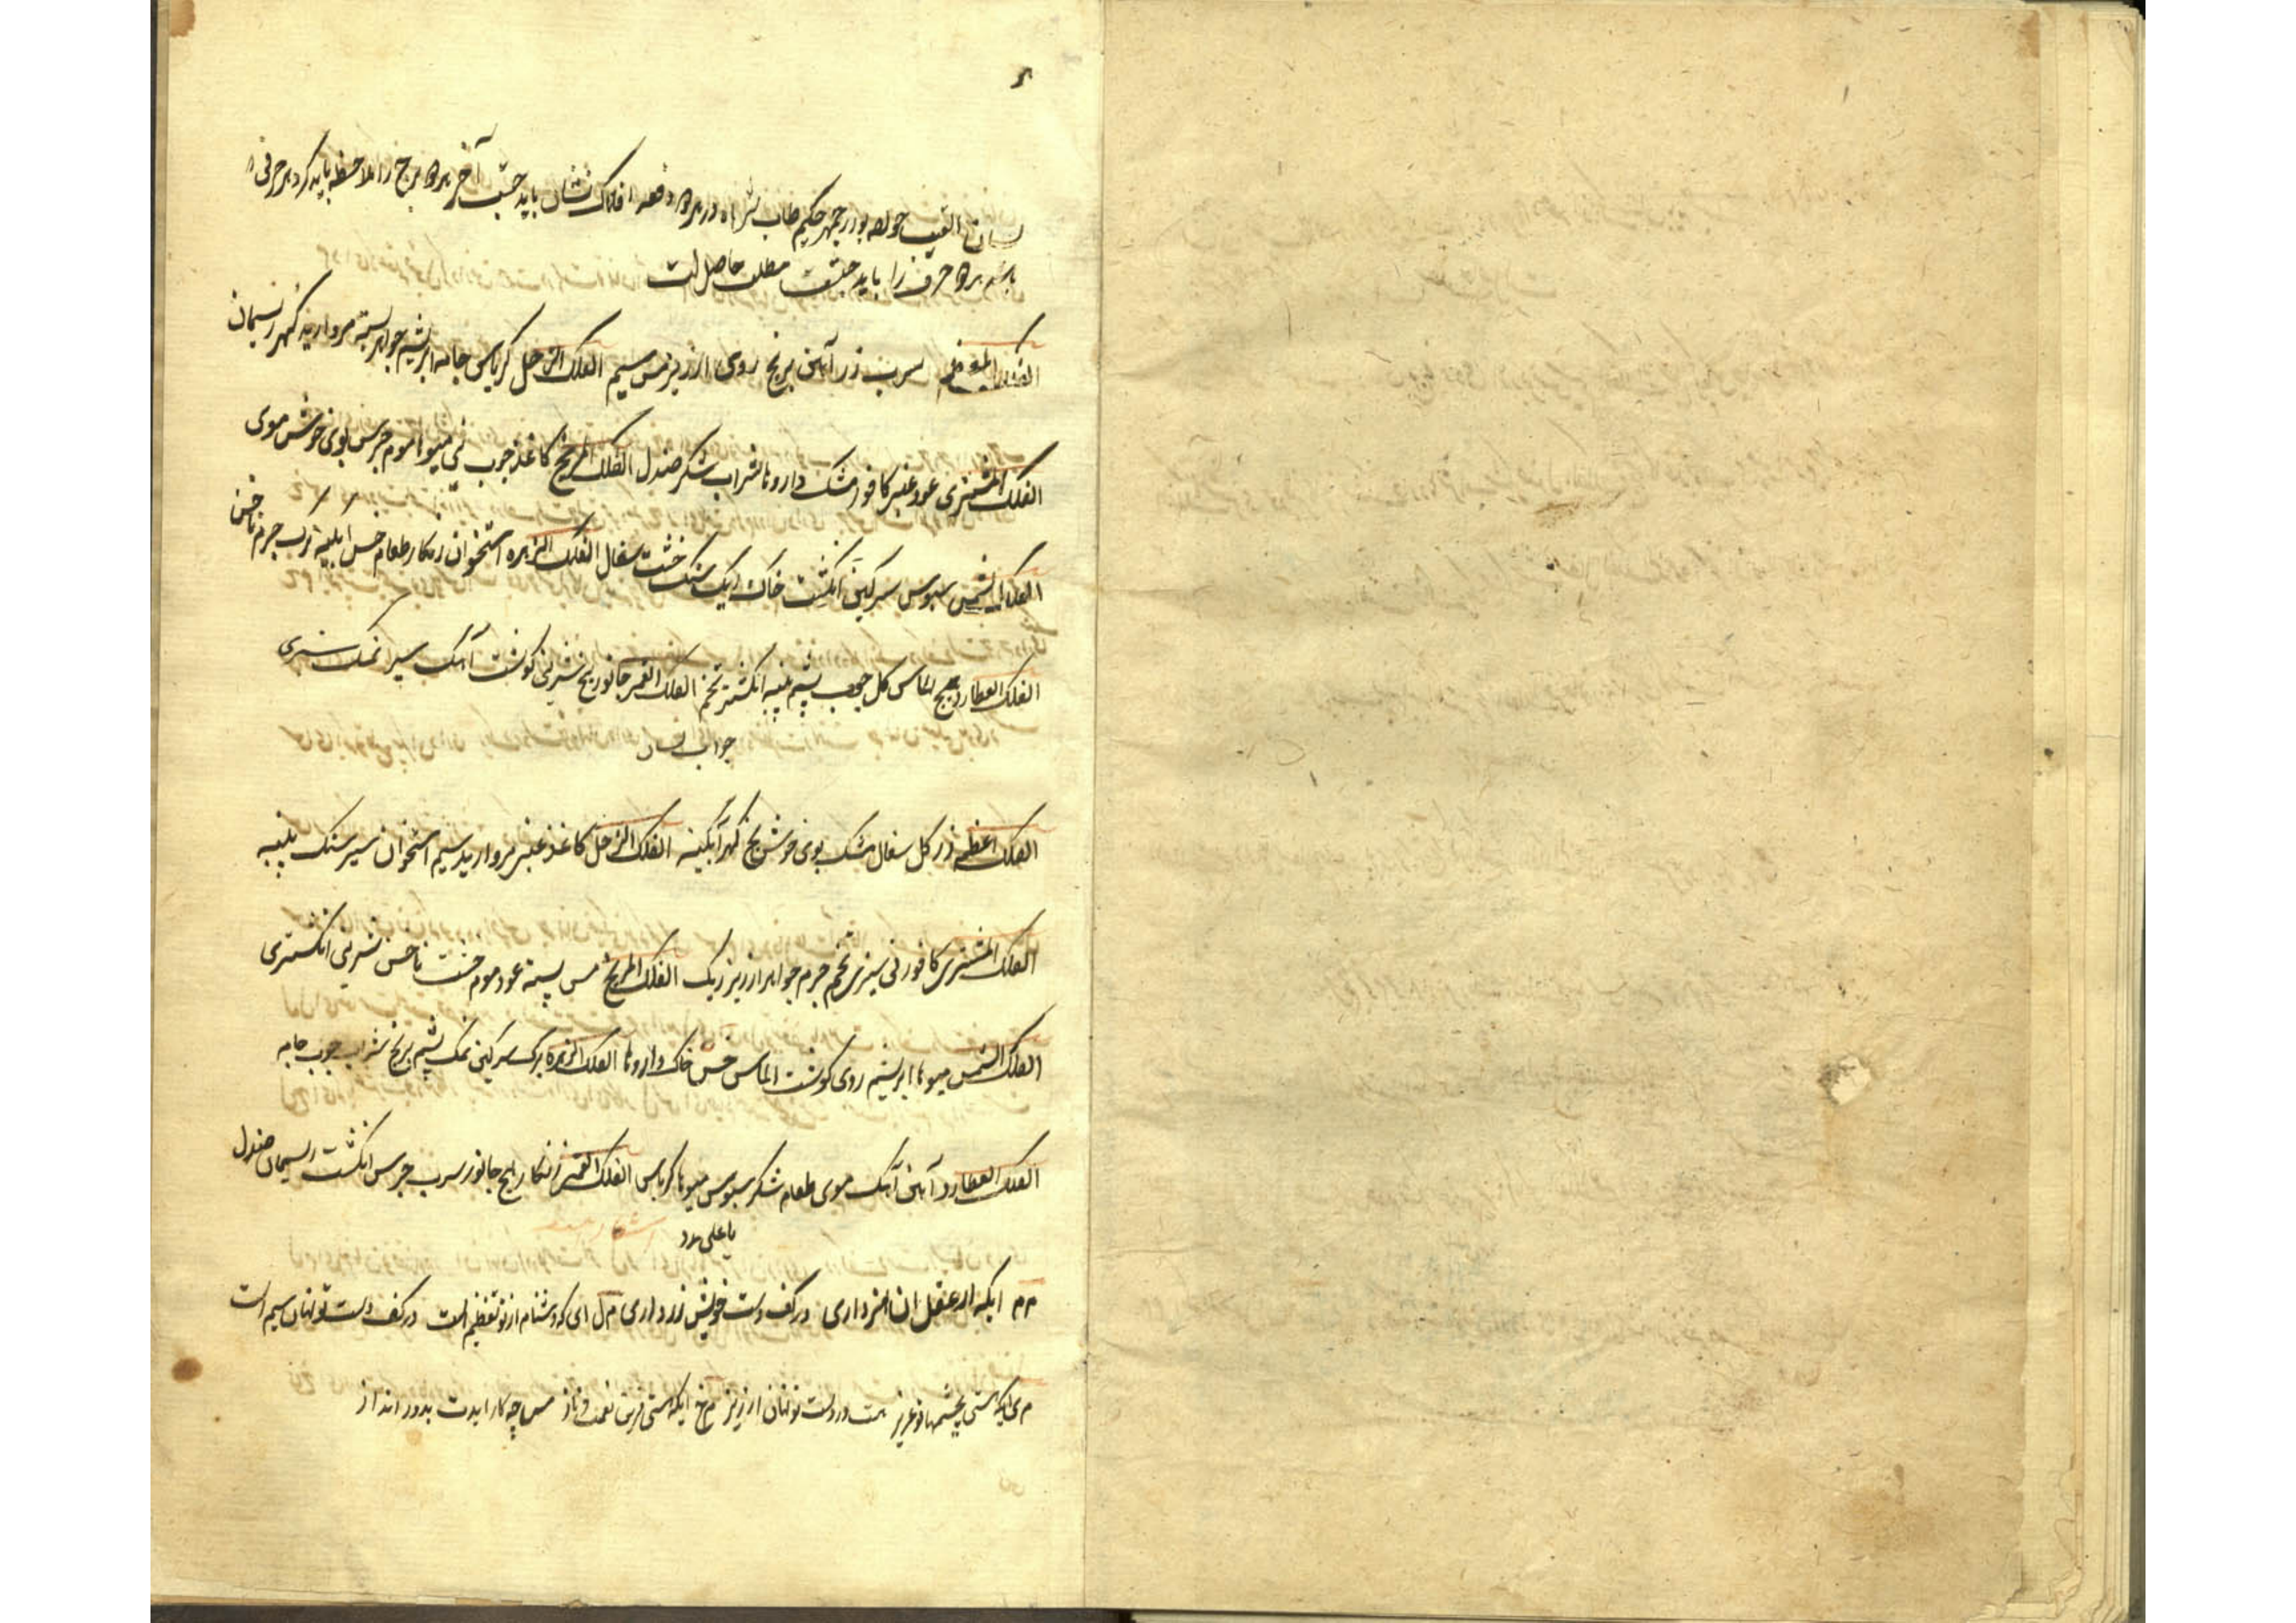 لسان الغیب بوزرجمهر حکیم طاب ثراه در هر دو دفعه افلاک نشان باید جست آخر هر دو برج را ملاحظه باید کرد هر حرفی
باشد هر دو حرف را باید جست مطلب حاصل است
الفلک سرب زر آهن برنج روی ارزیز مس سیم الفلک الزحل کرباس جامه ابریشم جواهر پسته مروارید گهر ریسمان
الفلک المشتری عود عنبر کافور مشک داروها شراب شکر صندل الفلک المریخ کاغذ چوب نی میوها موم جرس بوی خوش موی
الفلک الشمس سبوس سرکین انکشت خاک ریک سنک خشت سفال الفلک الزهره استخوان زنکار طعام خس ابکینه برک جرم ناخن
الفلک العطارد هیچ الماس کل پشم پنبه انکشتر تخم الفلک القمر جانور یخ شیرینی کوشت آهک سیر نمک سبزی
جواب
الفلک اعظم زر کل سفال مشک بوی خوش یخ گهر آبکینه الفلک الزحل کاغذ عنبر مروارید سیم استخوان سیر سنک پنبه
الفلک المشتری کافور نی سبزی تخم جرم جواهر ارزیز ریک الفلک المریخ مس پسته عود موم خشت ناخن شیرینی انکشتری
الفلک الشمس میوها ابریشم روی کوشت الماس خس خاک داروها الفلک الزهره برک سرکین نمک پشم برنج شراب چوب جامه
الفلک العطارد آهن آهک موی طعام شکر سبوس میوها کرباس الفلک القمر زنکار هیچ جانور سرب جرس انکشت ریسمان صندل
یا علی مدد
م م ایکه از عقل اثر داری در کف دست خویش زر داری م ل ای که دشنام از تو تعظیم است در کف دست تو نهان سیم است
م ی ایکه هستی بچشمها عزیز هست در دست تو نهان ارزیز م خ ایکه هستی قرین نعمت و ناز مس چه کار ایدت بدور انداز